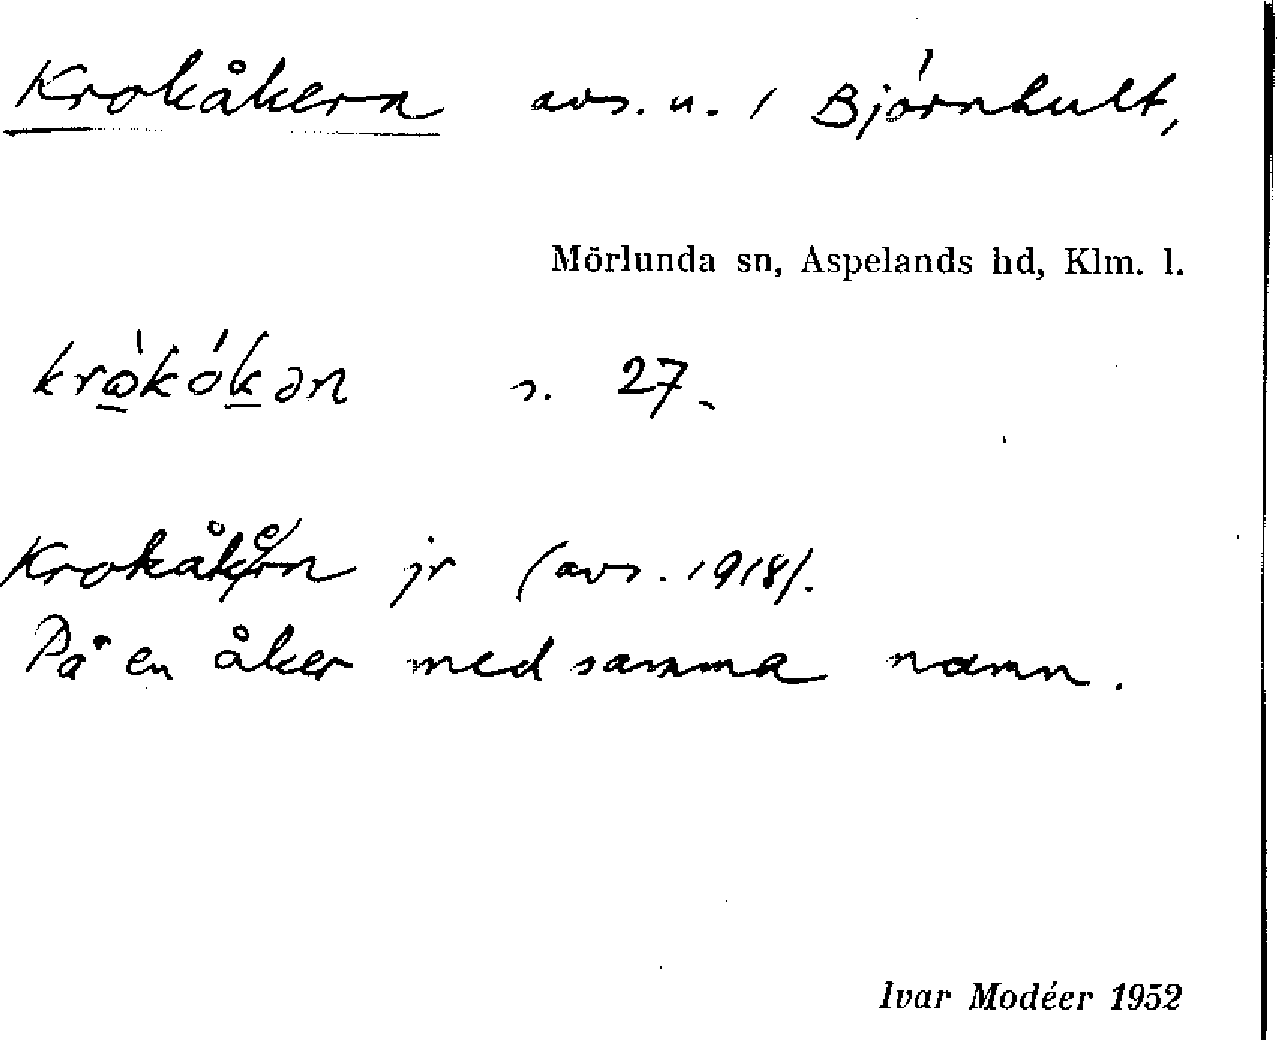 Krokåkern avs. u. / Björnhult,
Mörlunda sn, Aspelands hd, Klm. l.
kròkókən s. 27.
Krokåkern jr (avs. 1918).
På en åker med samma namn.
Ivar Modéer 1952